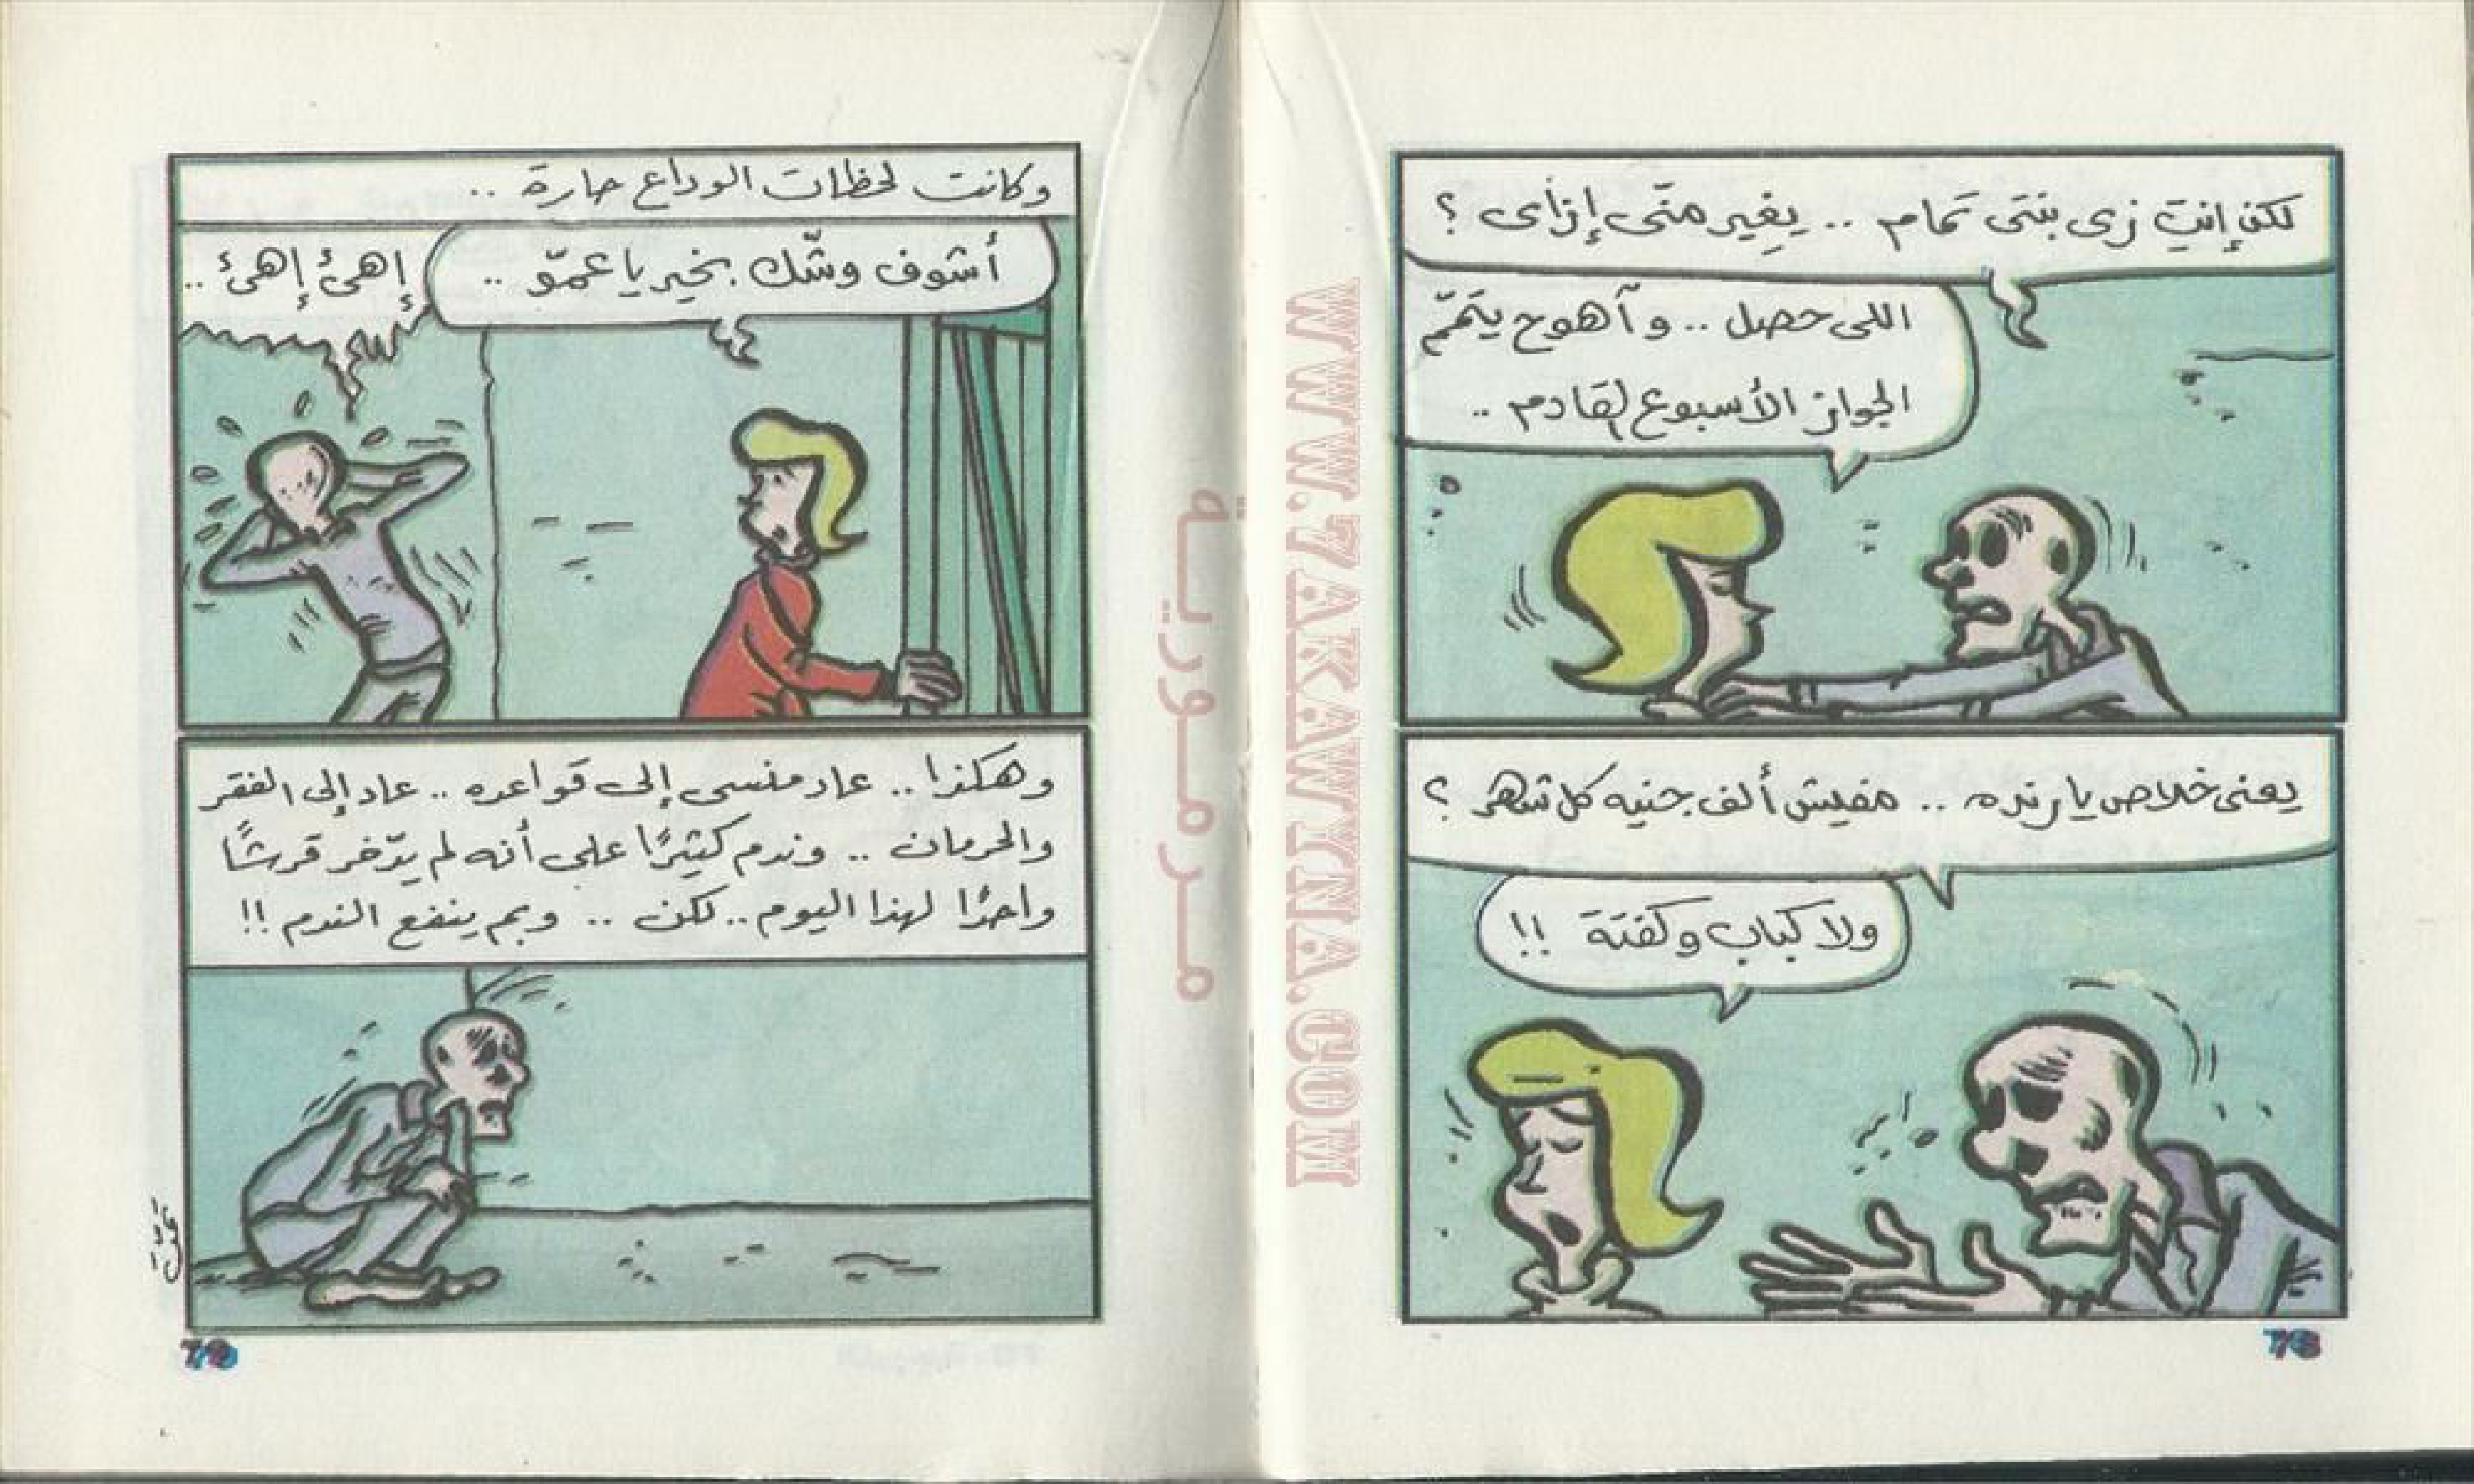 لكن إنتِ زى بنتى تمام .. يِغير منّى إزاى ؟
اللى حصل .. وآهوح يتمّم
الجواز الأسبوع القادم ..
يعنى خلاص يا رنده .. مفيش ألف جنيه كل شهر ؟
ولا كباب وكفتة !!
وكانت لحظات الوداع حارة ..
أشوف وشّك بخير يا عمّو ..
إهئ إهئ ..
وهكذا .. عاد منسى إلى قواعده .. عاد إلى الفقر
والحرمان .. وندم كثيرًا على أنه لم يدّخر قرشًا
واحدًا لهذا اليوم .. لكن .. وبم ينفع الندم !!
78
79
WWW.7AKAWYNA.COM
مـرمـوريـة